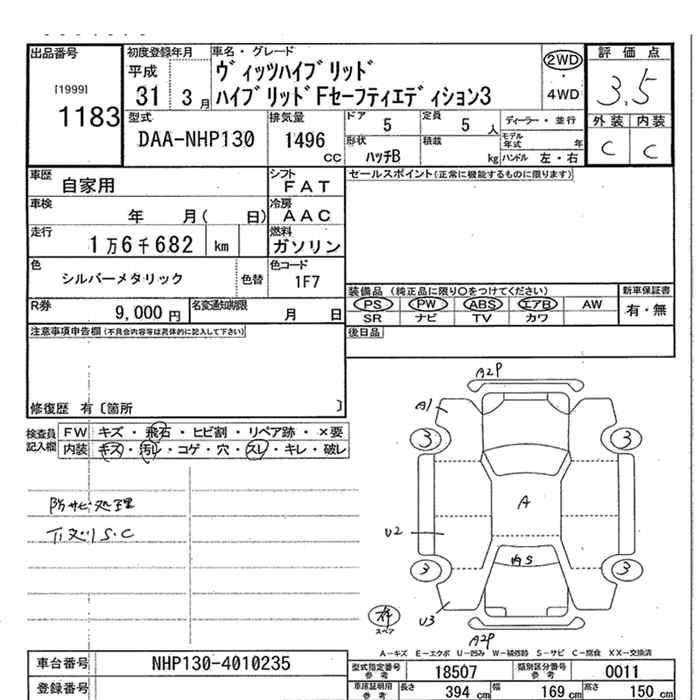 出品番号
[1999]
1183
初度登録年月
平成
31 3 月
車名・グレード
ヴィッツハイブリッド
ハイブリッドFセーフティエディション3
2WD
・
4WD
評価点
3.5
外装 内装
C C
型式
DAA-NHP130
排気量
1496
CC
ドア 5
定員 5 人
形状 ハッチB
積載 kg
ディーラー・並行
モデル年式 年
ハンドル 左・右
車歴 自家用
シフト FAT
セールスポイント(正常に機能するものに限ります)
車検 年 月( 日)
冷房 AAC
走行 1万6千682 km
燃料 ガソリン
色 シルバーメタリック 色替
色コード 1F7
R券 9,000 円
名変通知期限 月 日
装備品 (純正品に限り○をつけてください)
PS PW ABS エアB AW
SR ナビ TV カワ
新車保証書
有・無
後日品
注意事項申告欄(不具合内容等は具体的に記入して下さい)
修復歴 有〔箇所 〕
検査員記入欄
FW キズ・飛石・ヒビ割・リペア跡・×要
内装 キズ・汚レ・コゲ・穴・スレ・キレ・破レ
防サビ処理
下廻りS.C
A2P
A1
3 3
A
U2
内S
3 3
U3
スペア
A2P
A-キズ E-エクボ U-凹み W-補修跡 S-サビ C-腐食 XX-交換済
車台番号 NHP130-4010235
登録番号
型式指定番号 参考 18507
類別区分番号 参考 0011
車庫証明用 参考 長さ 394 cm 幅 169 cm 高さ 150 cm